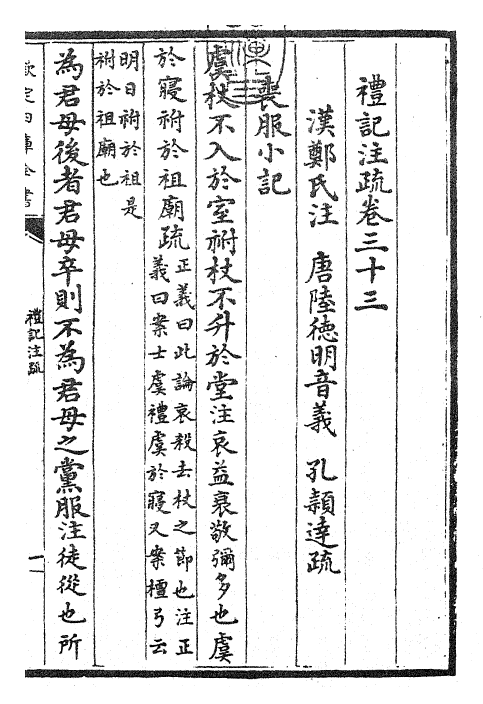 禮記注疏卷三十三
漢鄭氏注　唐陸德明音義　孔穎達疏
喪服小記
虞杖不入於室祔杖不升於堂注哀益衰敬彌多也虞
於寢祔於祖廟疏正義曰此論哀殺去杖之節也注正
義曰案士虞禮虞於寢又案檀弓云
明日祔於祖是
祔於祖廟也
為君母後者君母卒則不為君母之黨服注徒從也所
欽定四庫全書
禮記注疏
一